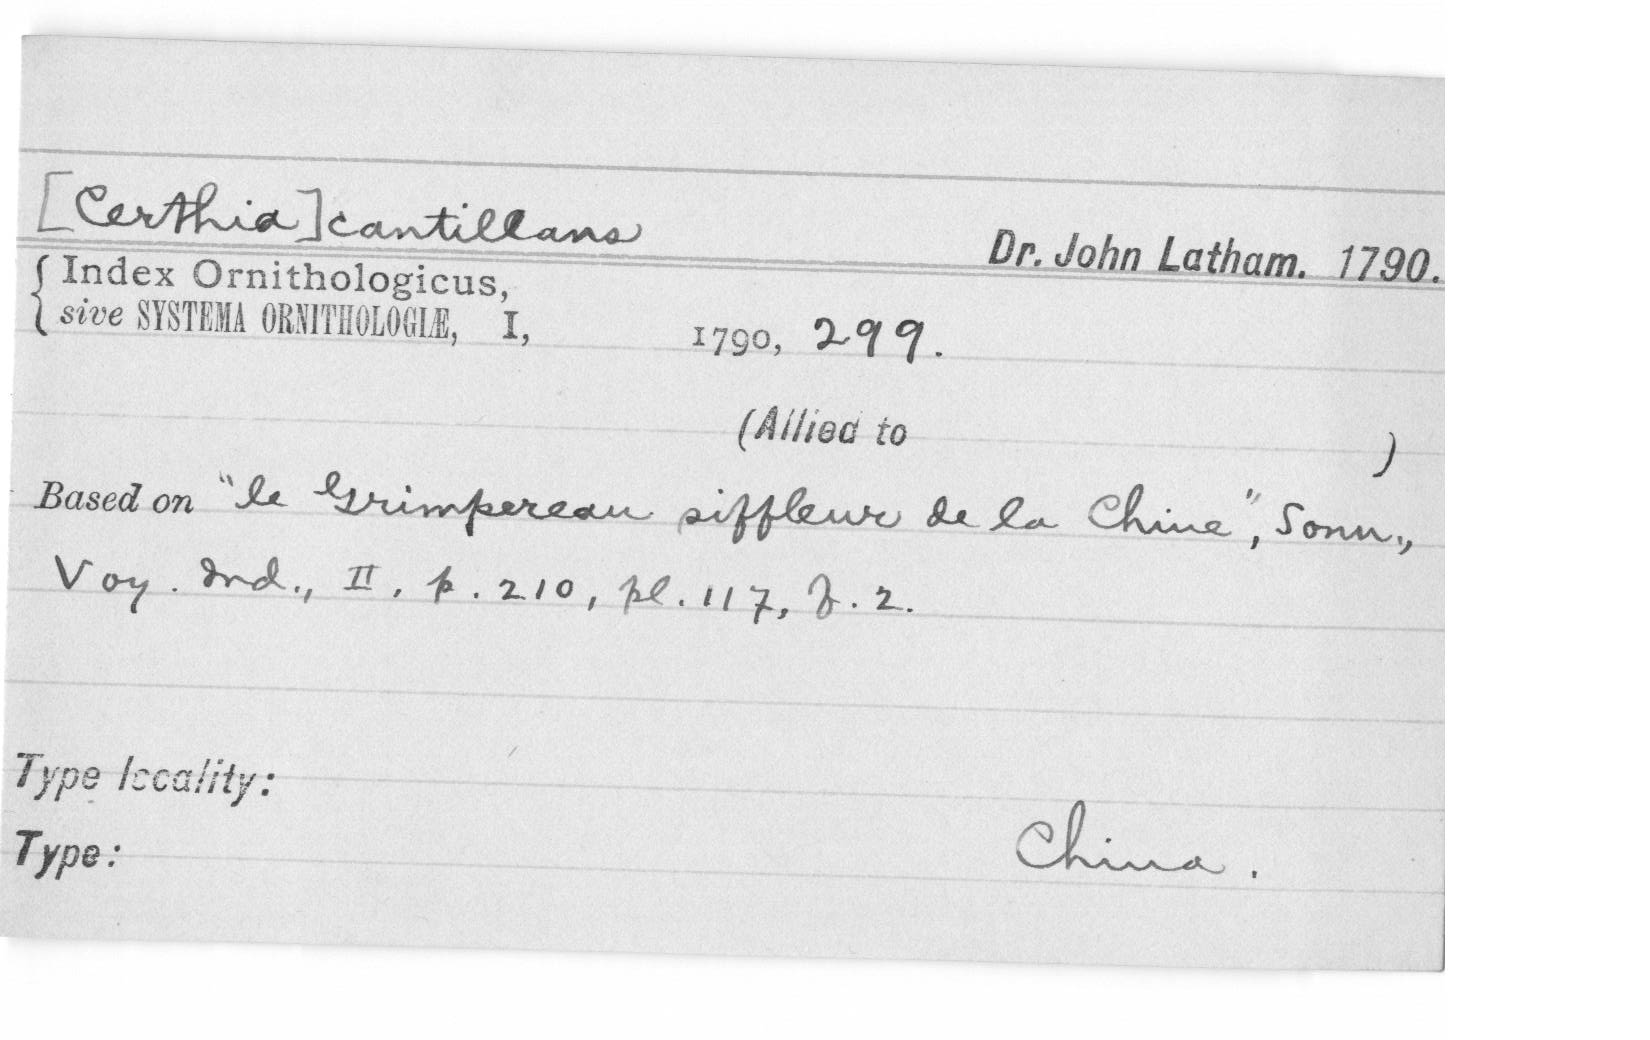 [Certhia] cantillans
Dr. John Latham. 1790.
{ Index Ornithologicus,
sive SYSTEMA ORNITHOLOGIÆ, I, 1790, 299.
(Allied to )
Based on "le Grimpereau siffleur de la Chine", Sonn.,
Voy. Ind., II, p. 210, pl. 117, f. 2.
Type locality:
China.
Type: